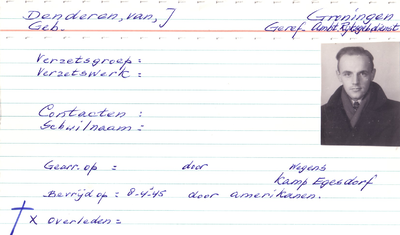 Denderen, van, J Groningen
Geb. Geref. Ambt. Rijksgebdienst
Verzetsgroep :
Verzetswerk :
Contacten :
Schuilnaam :
Gearr. op = door Wegens
Kamp Egesdorf
Bevrijd op : 8-4-45 door amerikanen.
X Overleden =